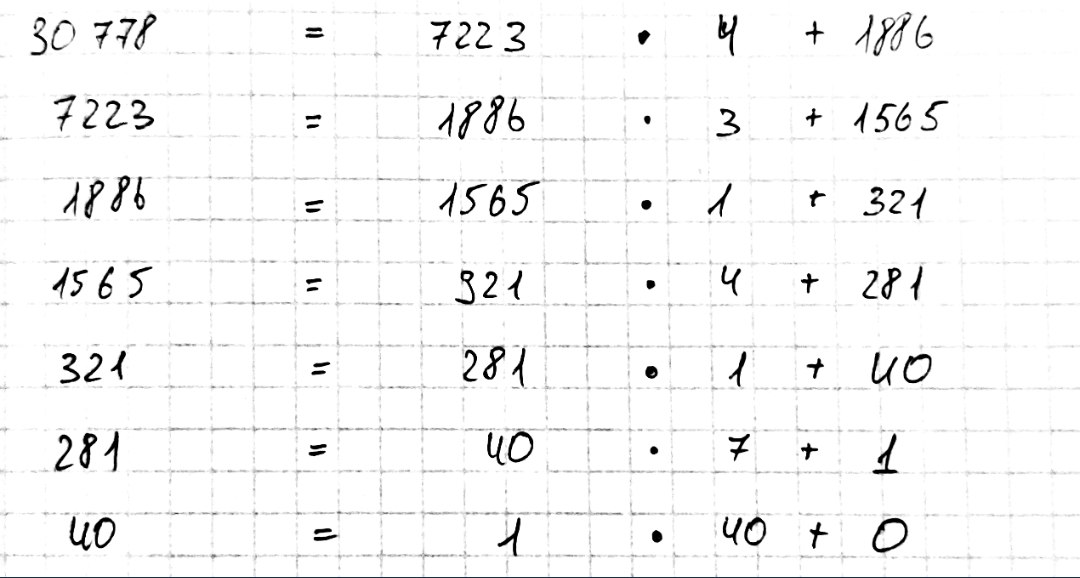 30 778 = 7223 · 4 + 1886
7223 = 1886 · 3 + 1565
1886 = 1565 · 1 + 321
1565 = 321 · 4 + 281
321 = 281 · 1 + 40
281 = 40 · 7 + 1
40 = 1 · 40 + 0